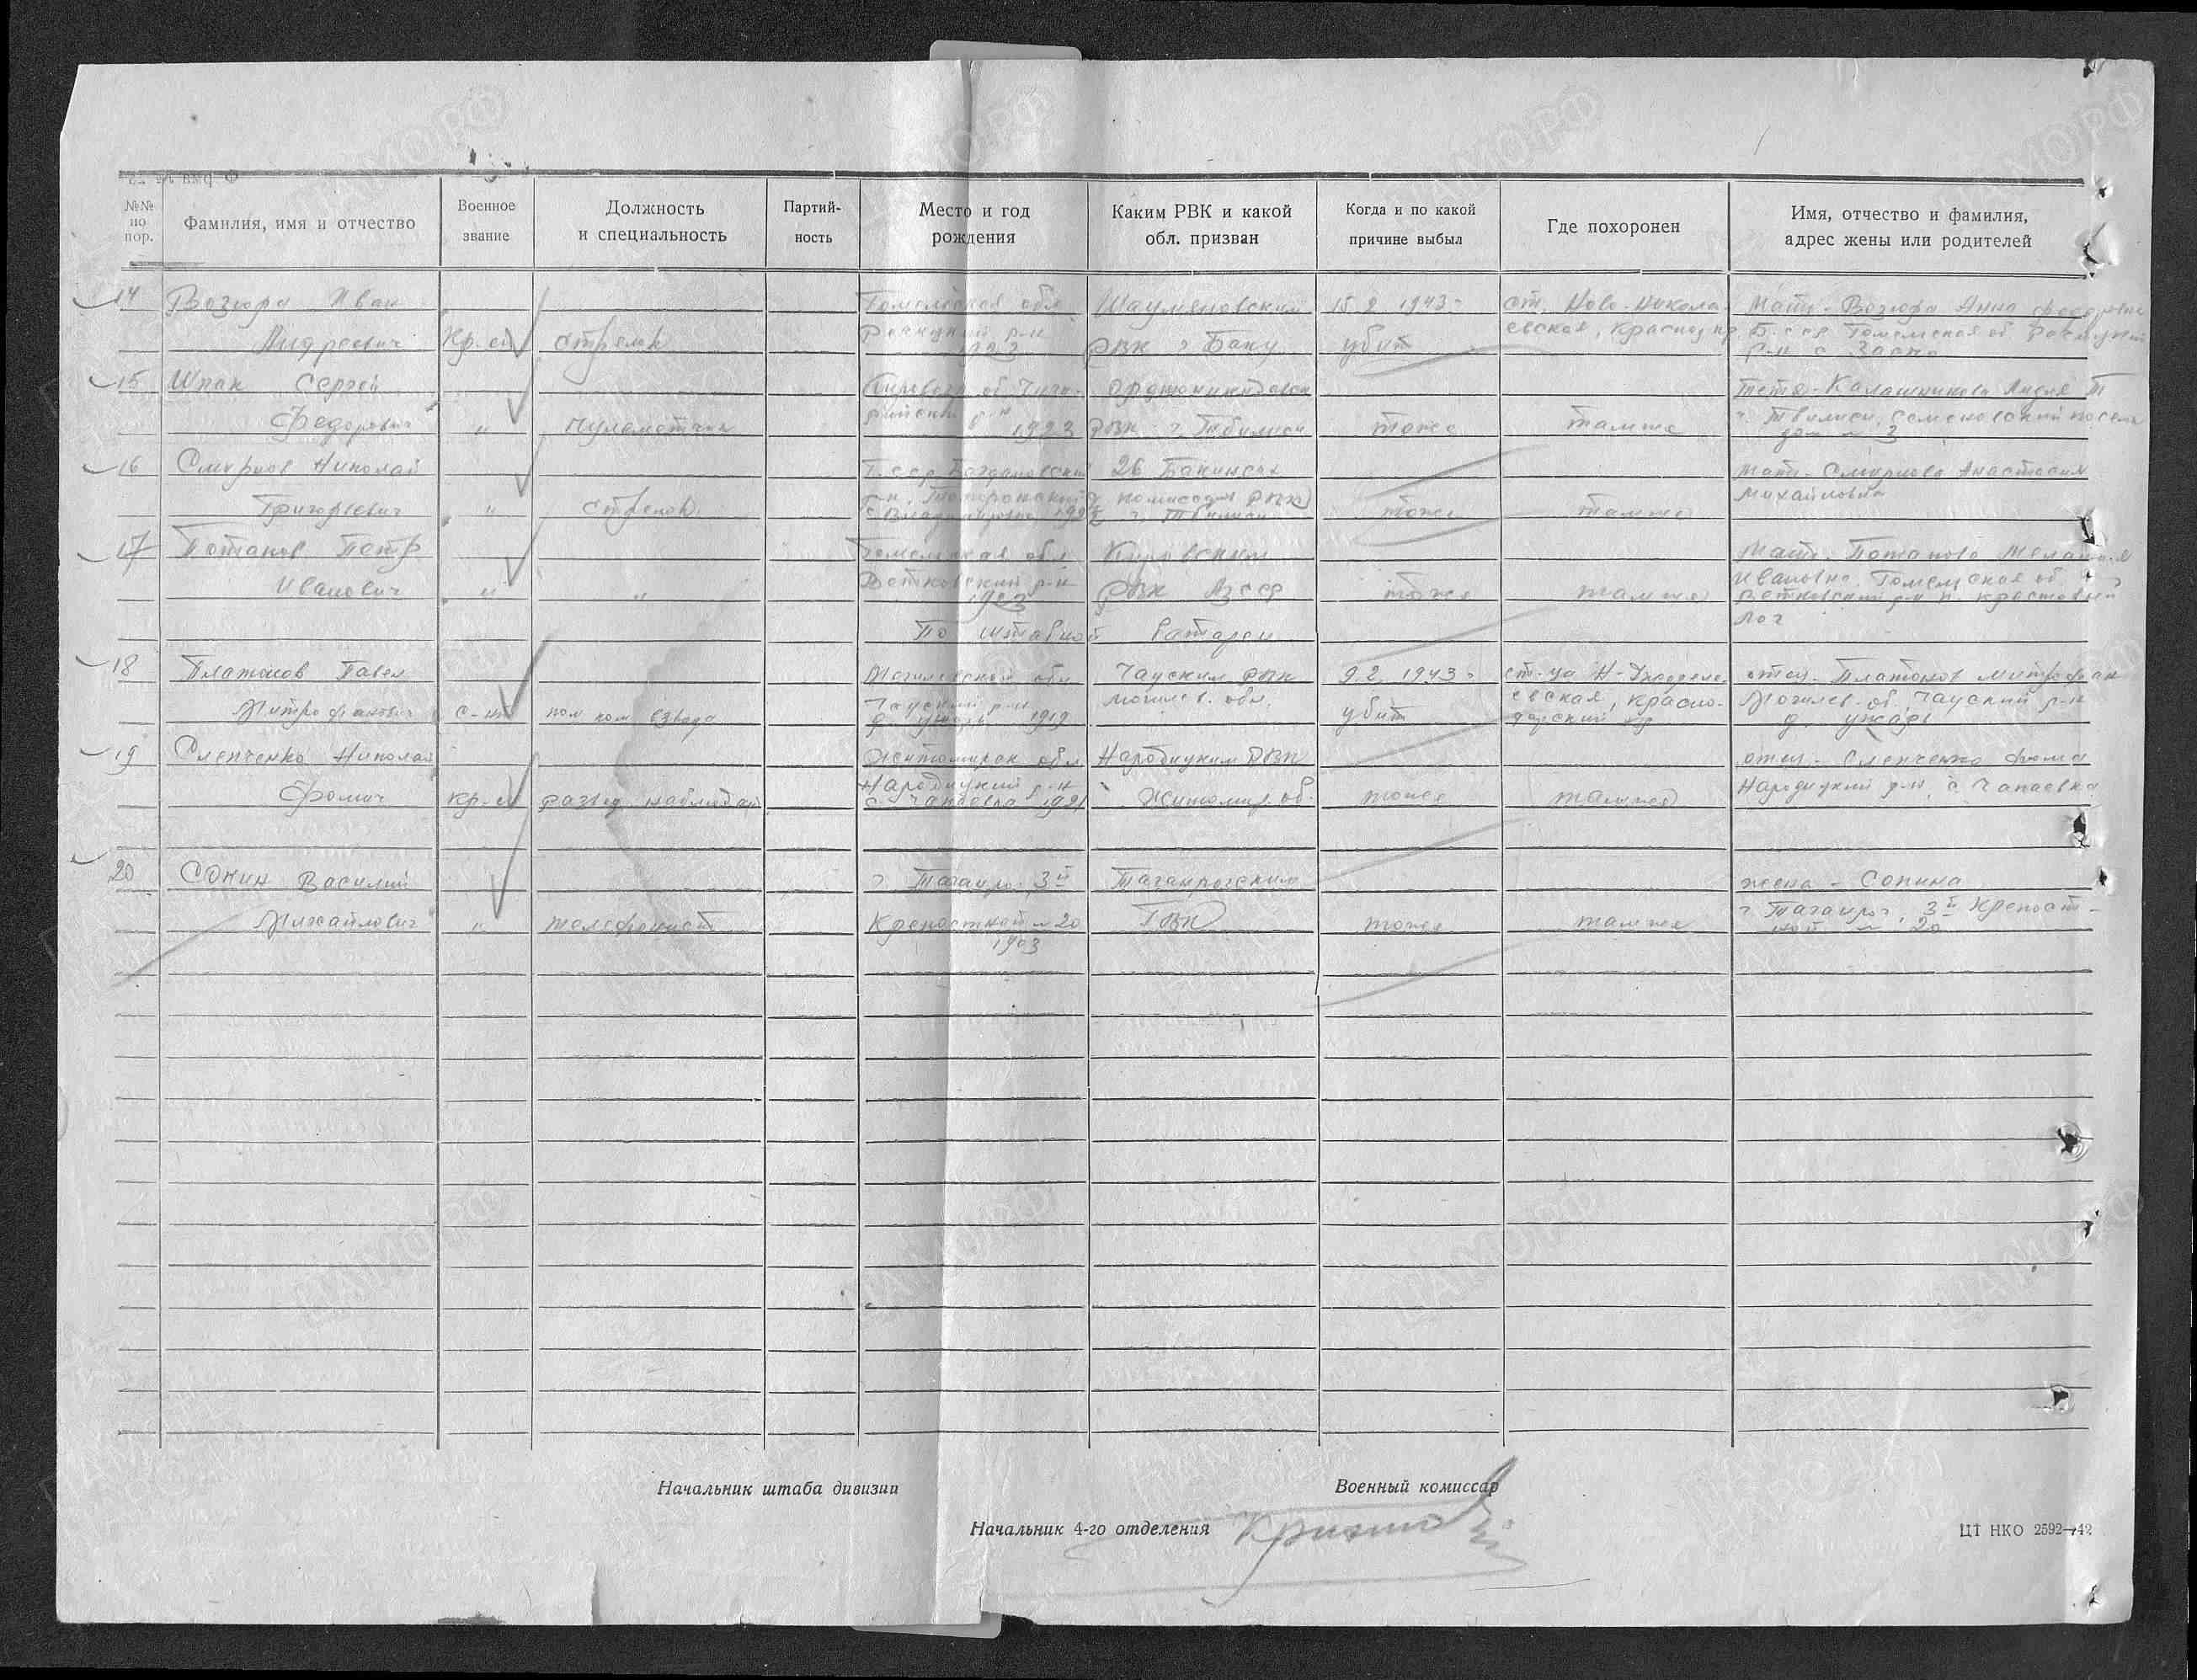 №№ по пор.
Фамилия, имя и отчество
Военное звание
Должность и специальность
Партийность
Место и год рождения
Каким РВК и какой обл. призван
Когда и по какой причине выбыл
Где похоронен
Имя, отчество и фамилия, адрес жены или родителей
14 Возюра Иван Гомельская обл Шаумяновский 15.2 1943 г ст. Ново-Никола- Мать-Возюра Анна Федоровна
Андреевич Кр-ец стрелок р-н 1923 РВК г Баку убит евская, Краснод кр. Б.сср Гомельская об
р-н с
15 Шпак Сергей об. Орджоникидзевск Тетя-Калашникова Лидия
Федорович " пулеметчик р-н 1923 РВК г. Тбилиси тоже там же г. Тбилиси, Семеновский посел
дом № 3
16 Смирнов Николай Г.сср Богдановский 26 Бакинских мать-Смирнова Анастасия
Григорьевич " стрелок р-н комиссаров РВК г. Тбилиси тоже там же Михайловна
17 Потапов Петр Гомельская обл Кировским Мать-Потапова
Иванович " " Ветковский р-н 1923 РВК АзССР тоже там же Ивановна Гомельская об
Ветковский р-н п.
Лог
По штабной батареи
18 Платонов Павел Могилевской обл Чауским РВК 9.2.1943 г ст-ца отец-Платонов Митрофан
Митрофанович с-нт пом ком взвода Чауский р-н 1919 могилев. обл. убит евская, Красно-дарский кр Могилев-об, Чауский р-н
д.
19 Слепченко Николай Житомирск обл Народицким РВК отец-Слепченко Фома
Фомич кр-ец развед наблюдат Народицкий р-н с. Чапаевка 1921 Житомир. об. тоже там же Народицкий р-н, с. Чапаевка
20 Сонин Василий г Таганрог, 3й Таганрогским жена - Сонина
Михайлович " телефонист Крепостной № 20 ГВК тоже там же г Таганрог, 3й Крепост-
1903 ной № 20
Начальник штаба дивизии
Военный комиссар
Начальник 4-го отделения
ЦТ НКО 2592—42
ЦАМО.РФ